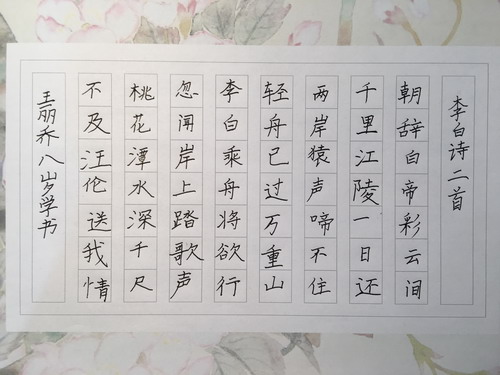 李白诗二首
朝辞白帝彩云间
千里江陵一日还
两岸猿声啼不住
轻舟已过万重山
李白乘舟将欲行
忽闻岸上踏歌声
桃花潭水深千尺
不及汪伦送我情
王丽乔八岁学书